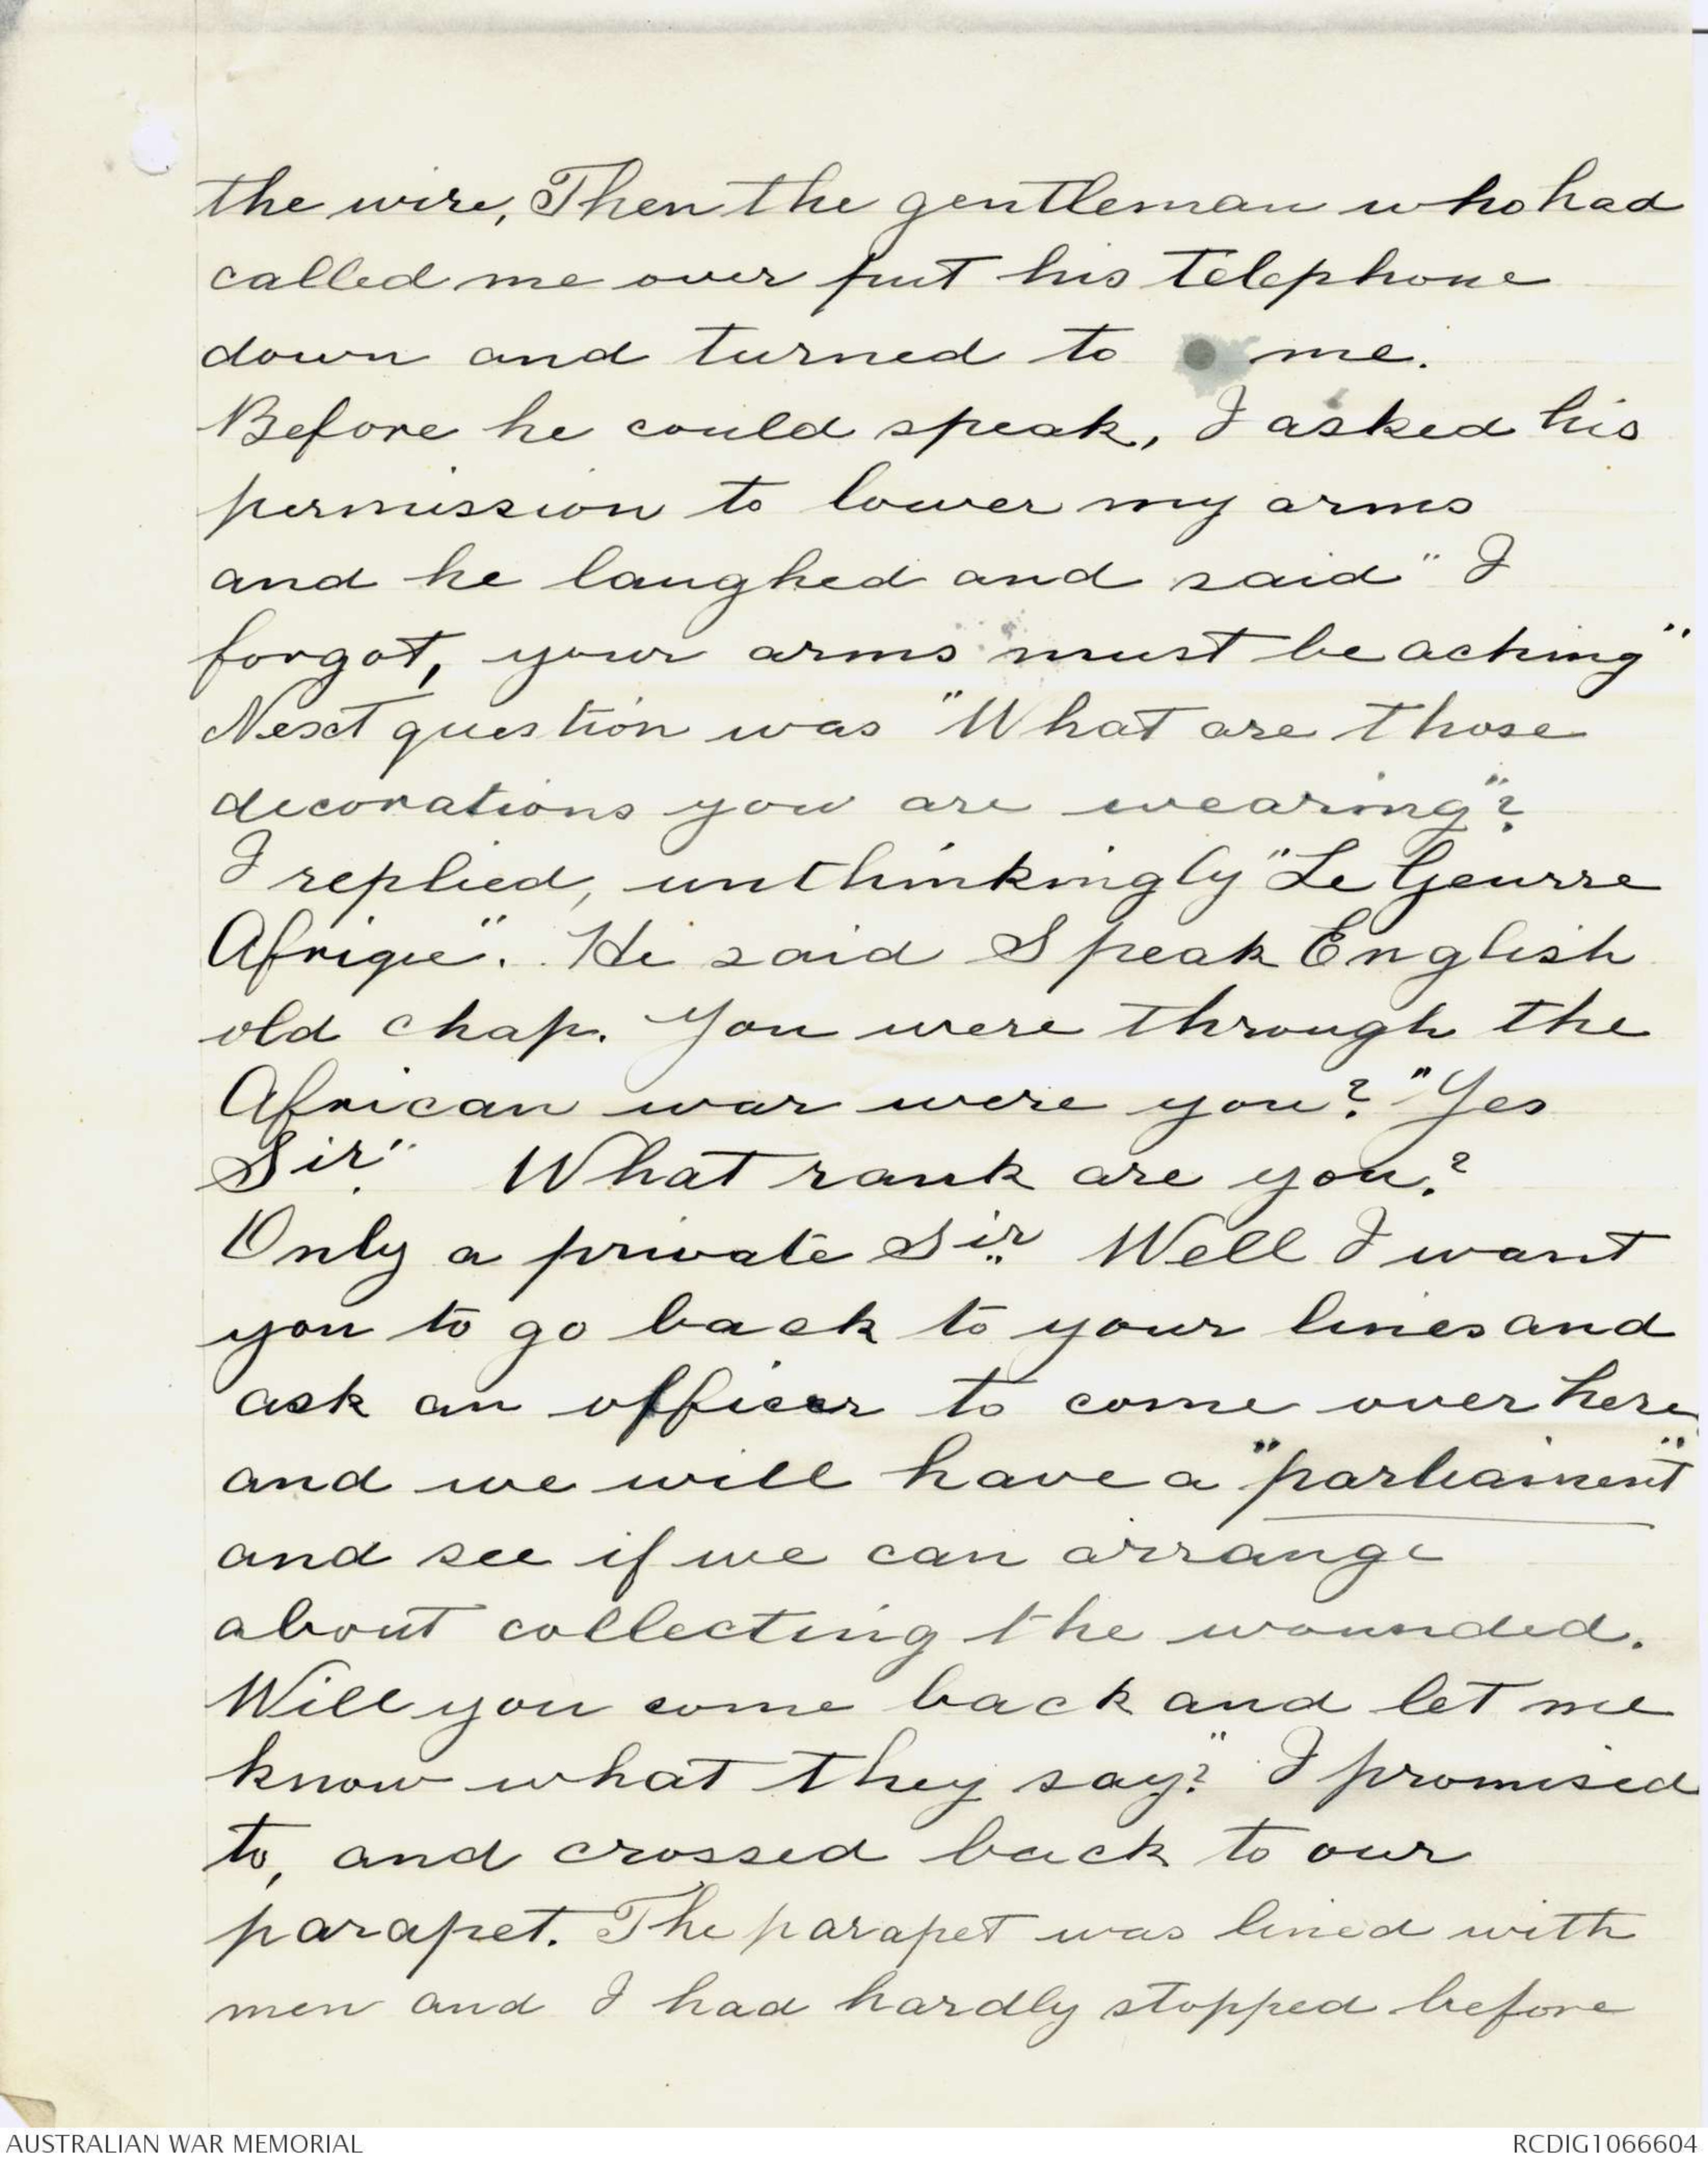 the wire, Then the gentleman who had
called me over put his telephone
down and turned to me.
Before he could speak, I asked his
permission to lower my arms
and he laughed and said "I
forgot, your arms must be aching"
Next question was "What are those
decorations you are wearing"?
I replied, unthinkingly "Le Geurre
Afrique". He said Speak English
old chap. You were through the
African war were you? "Yes
Sir". What rank are you?
Only a private Sir". Well I want
you to go back to your lines and
ask an officer to come over here
and we will have a "parliament"
and see if we can arrange
about collecting the wounded.
Will you come back and let me
know what they say?" I promised
to, and crossed back to our
parapet. The parapet was lined with
men and I had hardly stopped before
AUSTRALIAN WAR MEMORIAL
RCDIG1066604